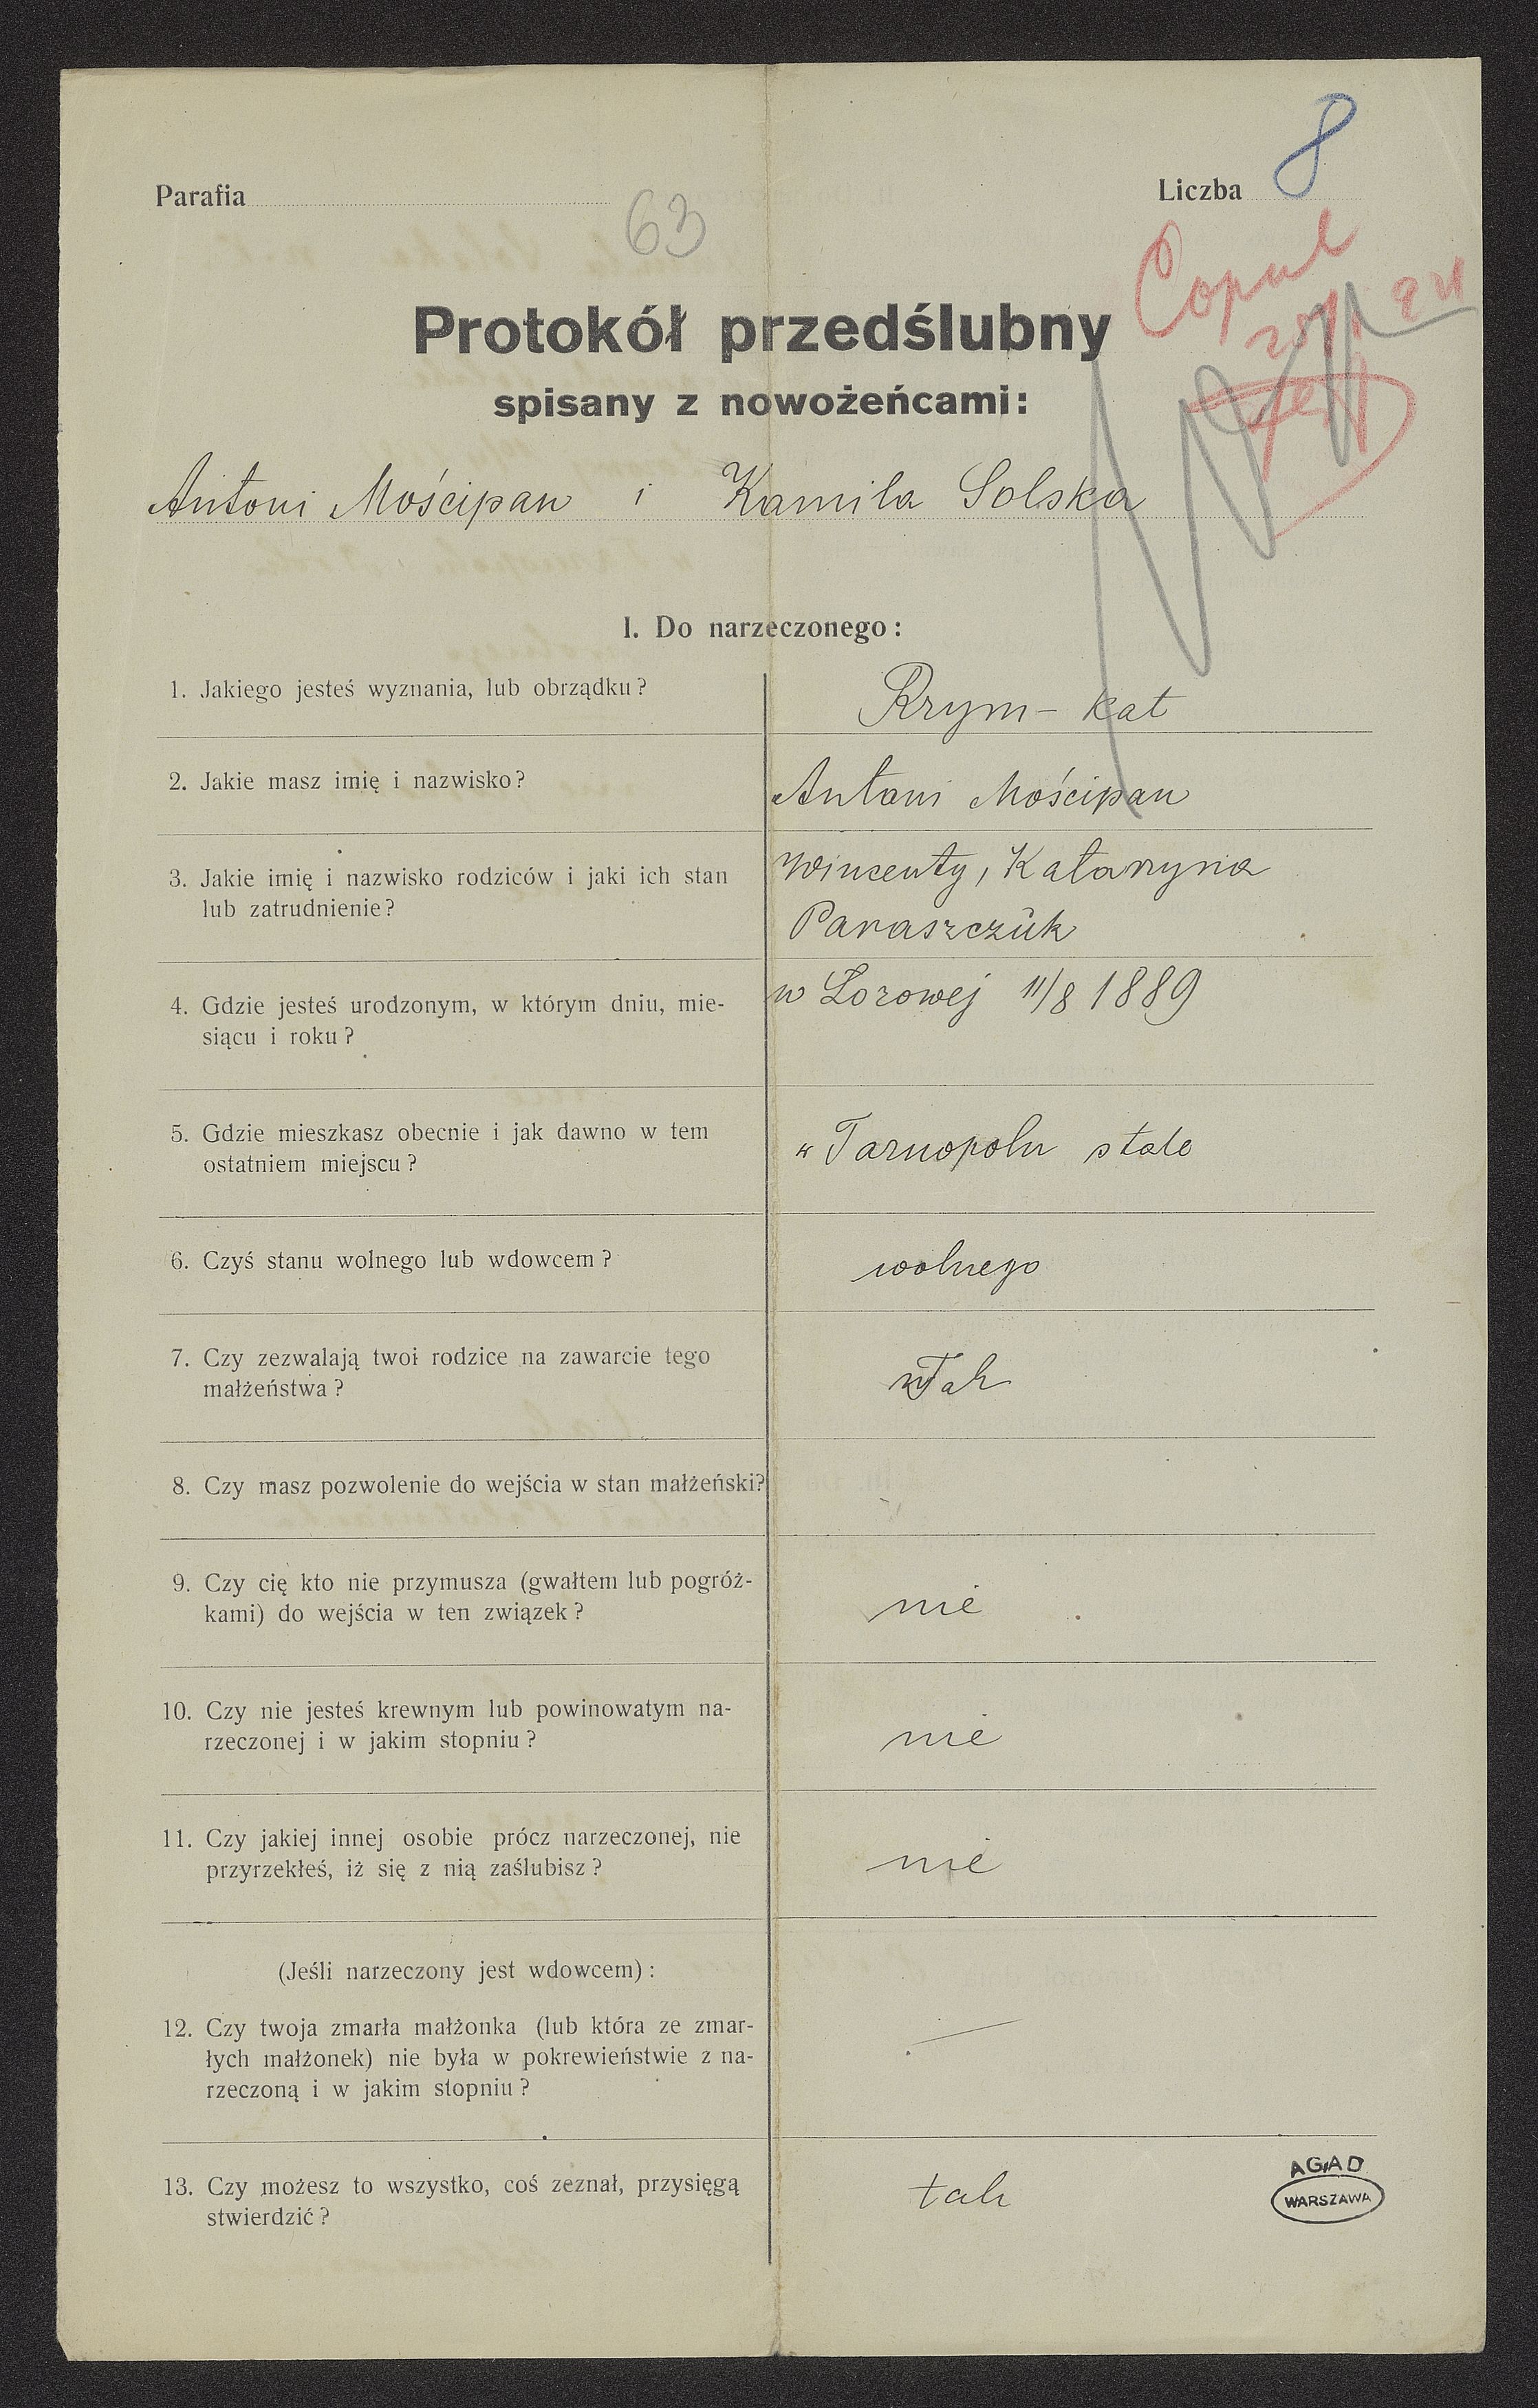 Parafia
Liczba 8
63
Copul
Protokół przedślubny
spisany z nowożeńcami:
Antoni Mościpan i Kamila Solska
I. Do narzeczonego:
1. Jakiego jesteś wyznania, lub obrządku?
Rzym-kat
2. Jakie masz imię i nazwisko?
Antoni Mościpan
3. Jakie imię i nazwisko rodziców i jaki ich stan
lub zatrudnienie?
Wincenty, Katarzyna
Paraszczŭk
4. Gdzie jesteś urodzonym, w którym dniu, mie-
siącu i roku?
w Łozowej 11/8 1889
5. Gdzie mieszkasz obecnie i jak dawno w tem
ostatniem miejscu?
w Tarnopolu stale
6. Czyś stanu wolnego lub wdowcem?
wolnego
7. Czy zezwalają twoi rodzice na zawarcie tego
małżeństwa?
Tak
8. Czy masz pozwolenie do wejścia w stan małżeński?
9. Czy cię kto nie przymusza (gwałtem lub pogróż-
kami) do wejścia w ten związek?
nie
10. Czy nie jesteś krewnym lub powinowatym na-
rzeczonej i w jakim stopniu?
nie
11. Czy jakiej innej osobie prócz narzeczonej, nie
przyrzekłeś, iż się z nią zaślubisz?
nie
(Jeśli narzeczony jest wdowcem):
12. Czy twoja zmarła małżonka (lub która ze zmar-
łych małżonek) nie była w pokrewieństwie z na-
rzeczoną i w jakim stopniu?
13. Czy możesz to wszystko, coś zeznał, przysięgą
stwierdzić?
tak
AGAD
WARSZAWA